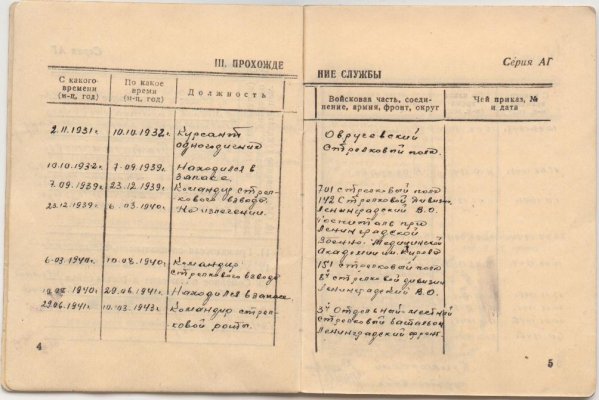 Серия АГ
III. ПРОХОЖДЕ
НИЕ СЛУЖБЫ
С какого времени (м-ц, год)
По какое время (м-ц, год)
Должность
Войсковая часть, соединение, армия, фронт, округ
Чей приказ, № и дата
2.11.1931г. 10.10.1932г. Курсант
одногодичник
Стрелковый полк.
10.10.1932г. 7.09.1939г. Находился в
запасе.
7.09.1939г. 23.12.1939г. Командир стрел-
кового взвода.
701 стрелковый полк
142 Стрелковой дивизии
Ленинградский В.О.
23.12.1939г. 6.03.1940г. На излечении.
Госпиталь при
Ленинградской
Военно-Медицинской
Академии им. Кирова
6.03.1940г. 10.08.1940г. Командир
стрелкового взвода
151 стрелковый полк
8й стрелковой дивизии
Ленинградский В.О.
10.08.1940г. 29.06.1941г. Находился в запасе.
29.06.1941г. 10.03.1943г. Командир стрел-
ковой роты.
3й Отдельный
стрелковый батальон
Ленинградский фронт.
4
5